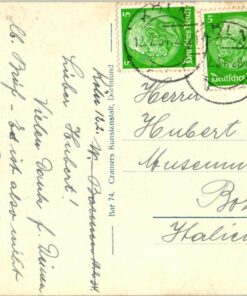 Köln 16.2.
Lieber Hubert!
Vielen Dank f. Deinen
lb. Brief - Es ist also nicht
Bar 74. Cramers Kunstanstalt, Dortmund
5
5
Deutsches Reich
5
Deutsches
Herrn
Hubert
Museum
Bo
Italie